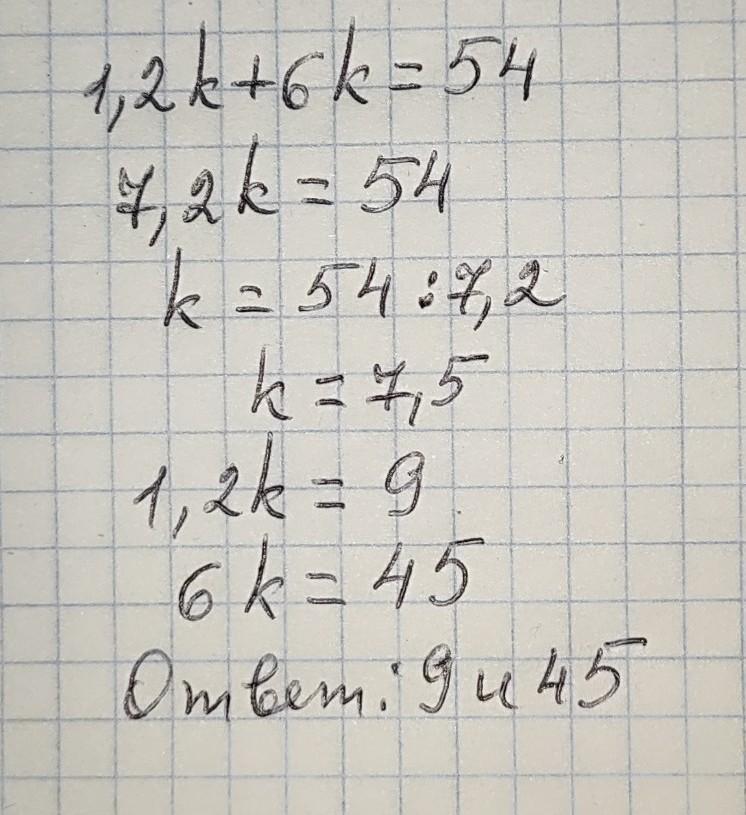 1,2k+6k=54
7,2k=54
k=54:7,2
k=7,5
1,2k=9
6k=45
Ответ: 9 и 45